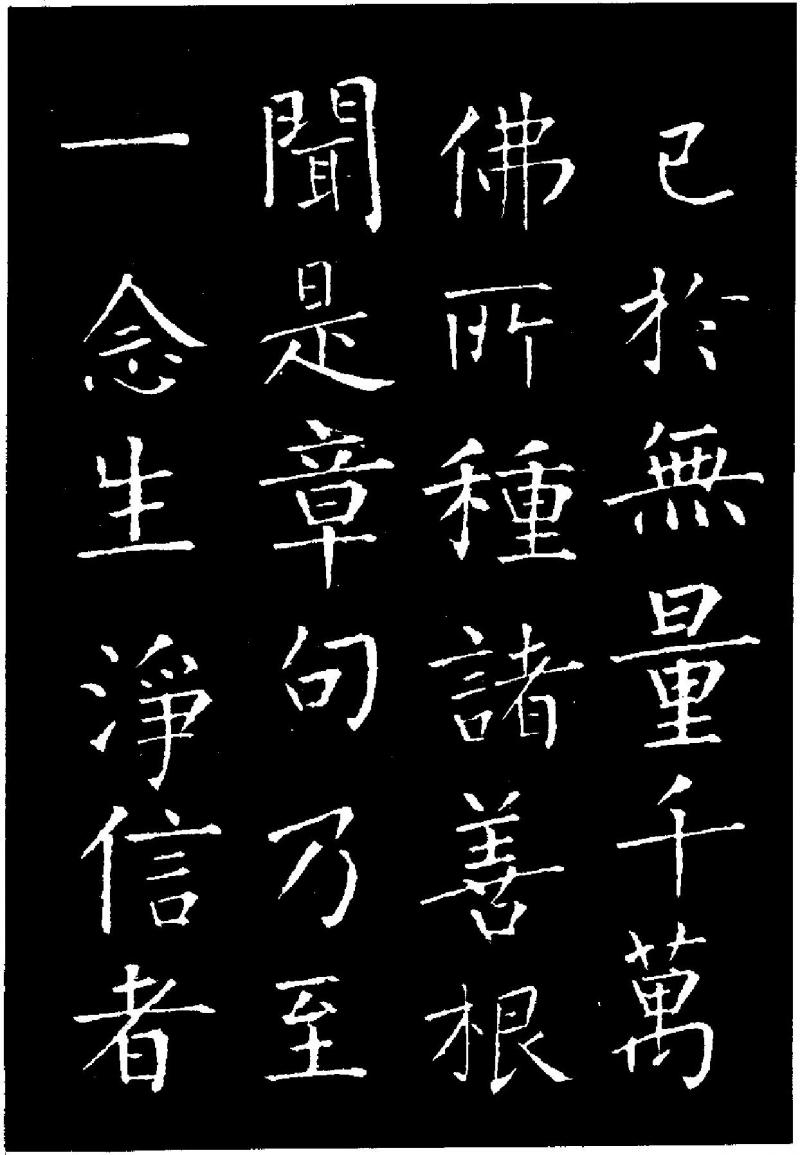 已於無量千萬
佛所種諸善根
聞是章句乃至
一念生淨信者